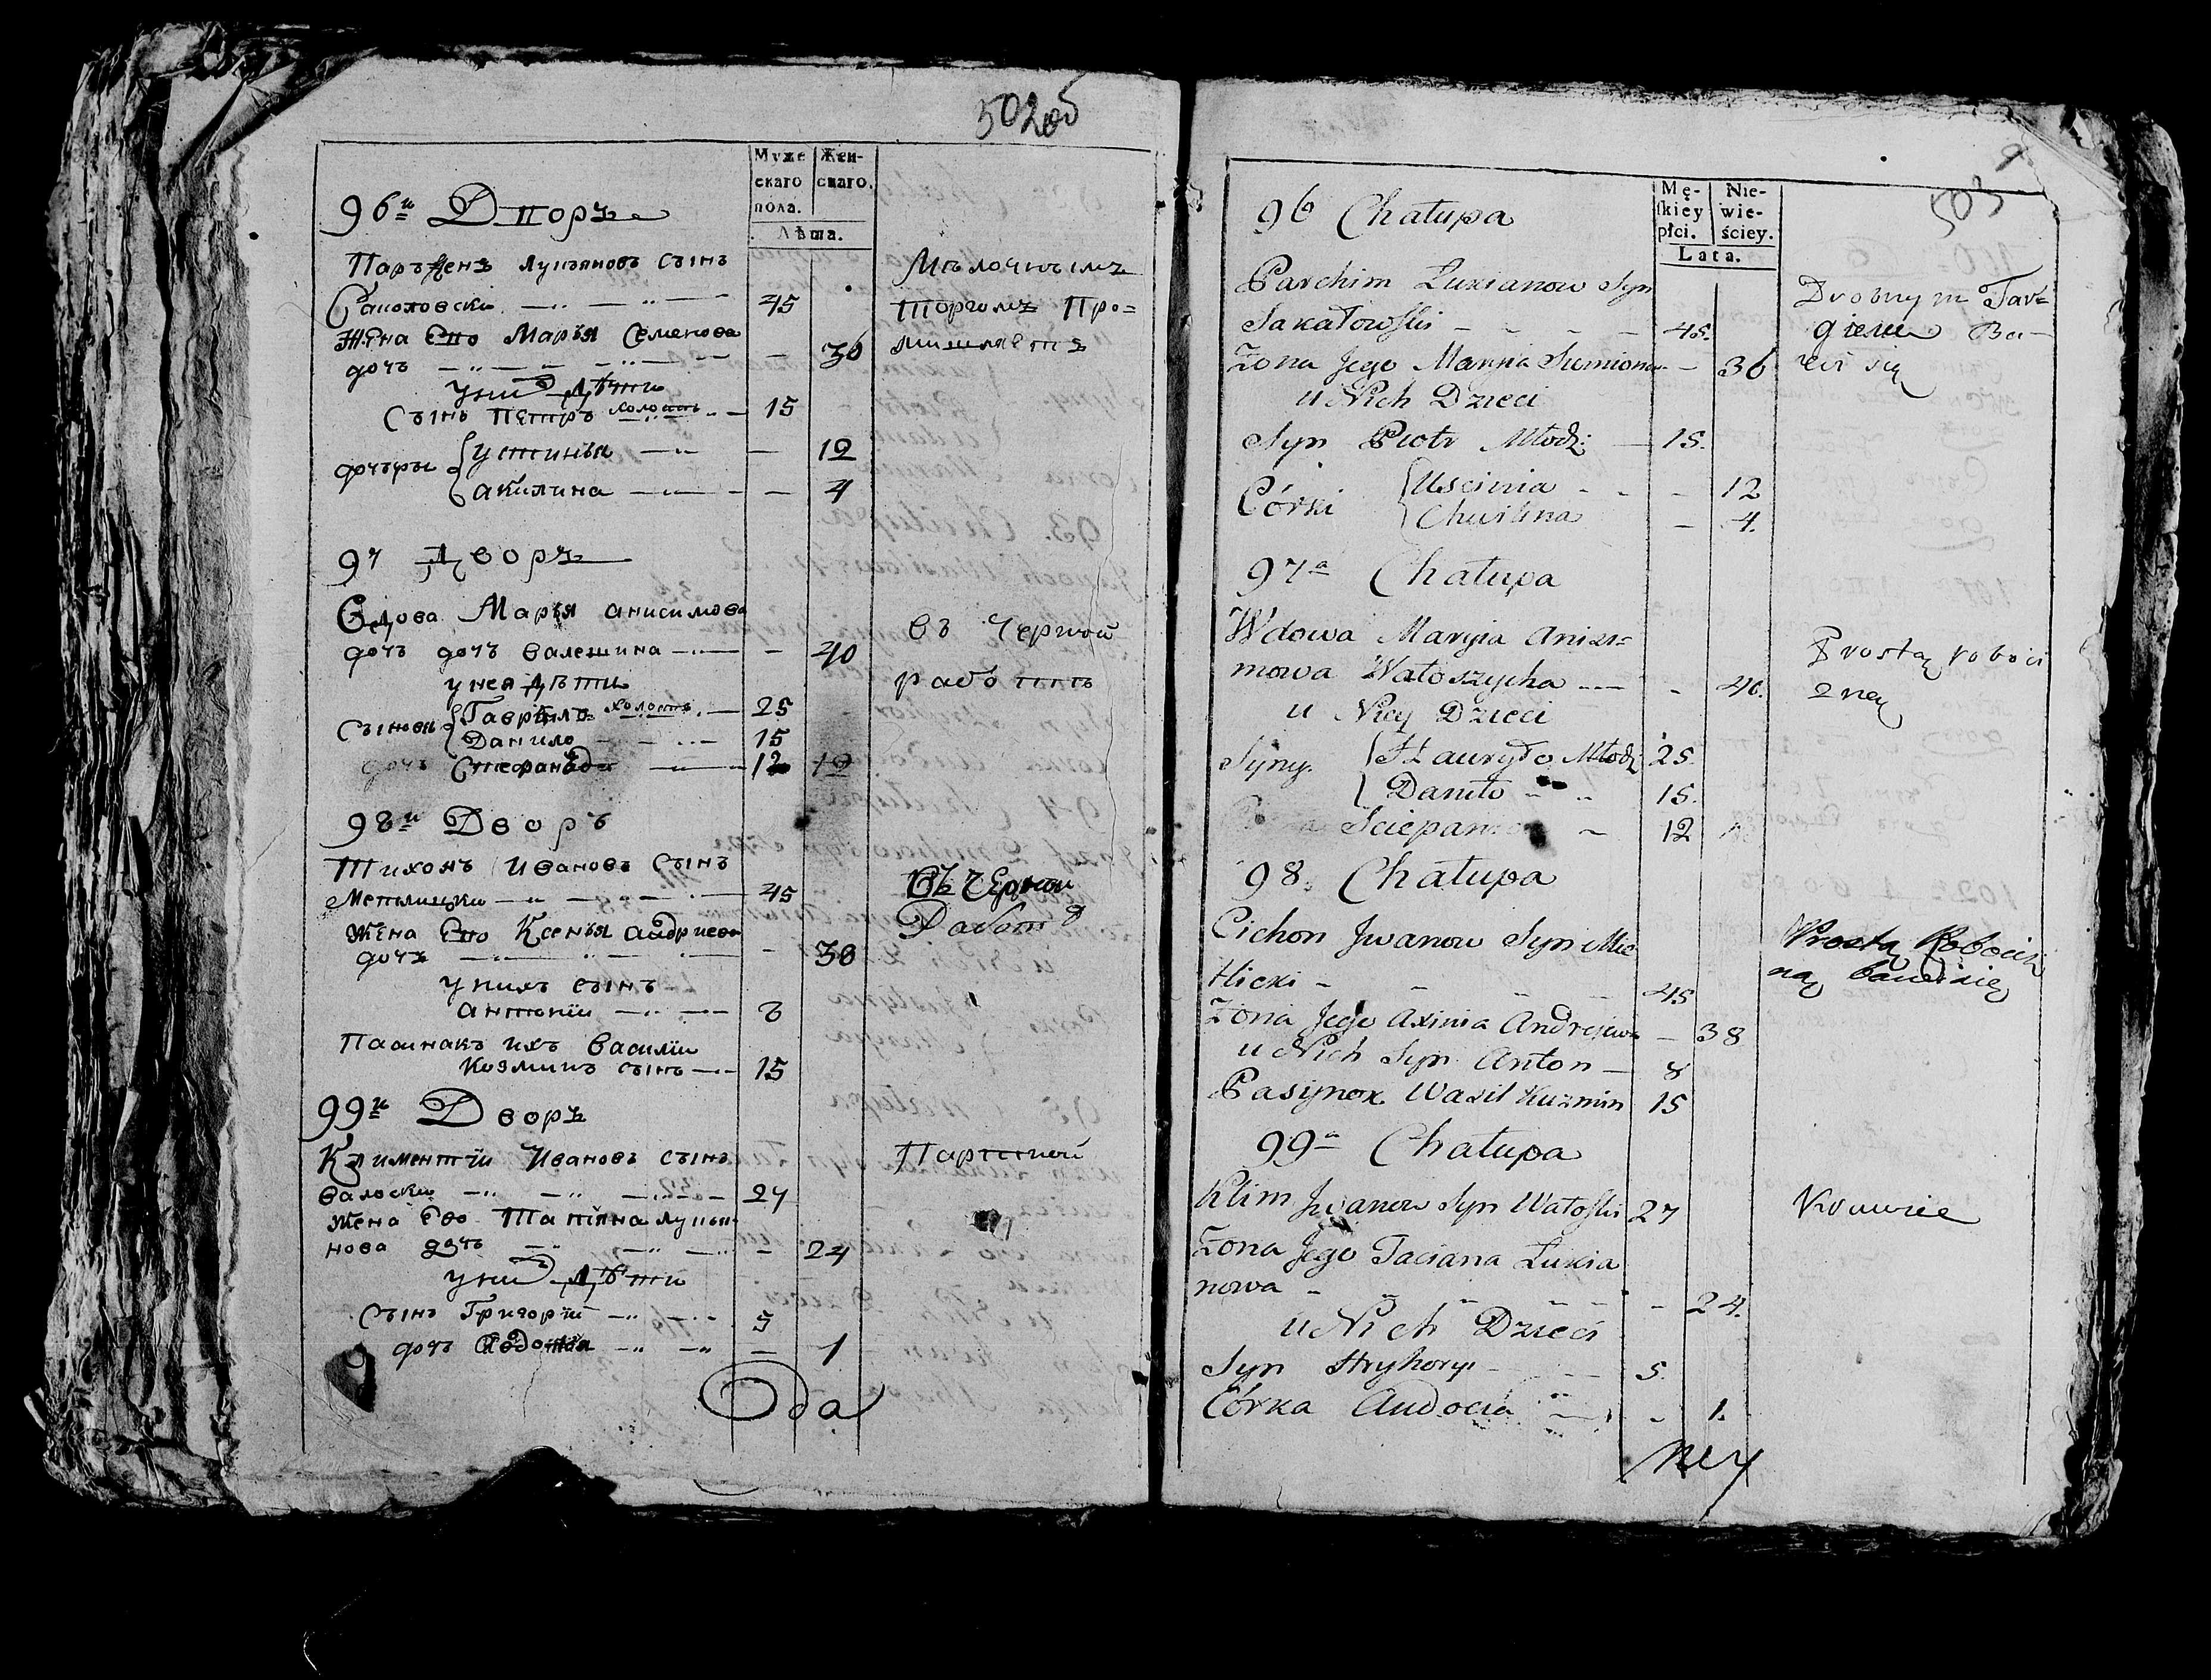 502об
Муже
скаго
пола.
Жен-
скаго.
Лѣта.
96й Дворъ
Парѳенъ Лукьяновъ сынъ
Саколовски 45
Мѣлочнымъ
торгомъ про=
мышляетъ
Жена Его Марья Семенова
дочь 36
у них Дѣти
Сынъ Петръ холостъ 15
дочъры Устинья 12
акилина 4
97 Дворъ
Вдова Марья анисимова
дочь дочь Валешина 40
въ Черной
работѣ
у нея дѣти
Сыновья Гаврило холостъ 25
Данило 15
дочь Стефанада 12 12
98й Дворъ
Тихонъ Ивановъ Сынъ
45
Въ Черной
Работѣ
Жена Его Ксенья андриева
дочь 38
у нихъ сынъ
антоній 8
Пасинакъ ихъ Василій
Козминъ сынъ 15
99й Дворъ
Климентій Ивановъ сынъ
Валоски 27
Портной
Жена Его Татіяна лукья-
нова дочь 24
у них Дѣти
Сынъ Григорій 5
дочь Авдотія 1
503
Mę-
skiey
płci.
Nie-
wie-
ściey.
Lata.
96 Chałupa
Parchim Łukianow Syn
Sakałowski 45.
Drobnym Tar=
giem Ba-
wi się
Żona Jego Maryja Siemionow 36
u Nich Dzieci
Syn Piotr Młodz: 15.
Córki Uscinia 12
Chwilina 4.
97a Chałupa
Wdowa Maryia Anisi=
mowa Wałoszycha 40.
Prostą roboci
zną
u Niey Dzieci
Syny Hauryło Młodz: 25.
Daniło 15.
Sciepan 12
98. Chałupa
Cichon Jwanow Syn Mie
tlicki 45
Prostą Robociz
ną bawi się
Żona Jego Axinia Andrejewa 38
u Nich Syn Anton 8
Pasynok Wasil Kuzmin 15
99a Chałupa
Klim Jwanow Syn Wałoski 27
Krawiec
Żona Jego Taciana Łukia
nowa 24.
u Nich Dzieci
Syn Hryhory 5.
Córka Audocia 1.